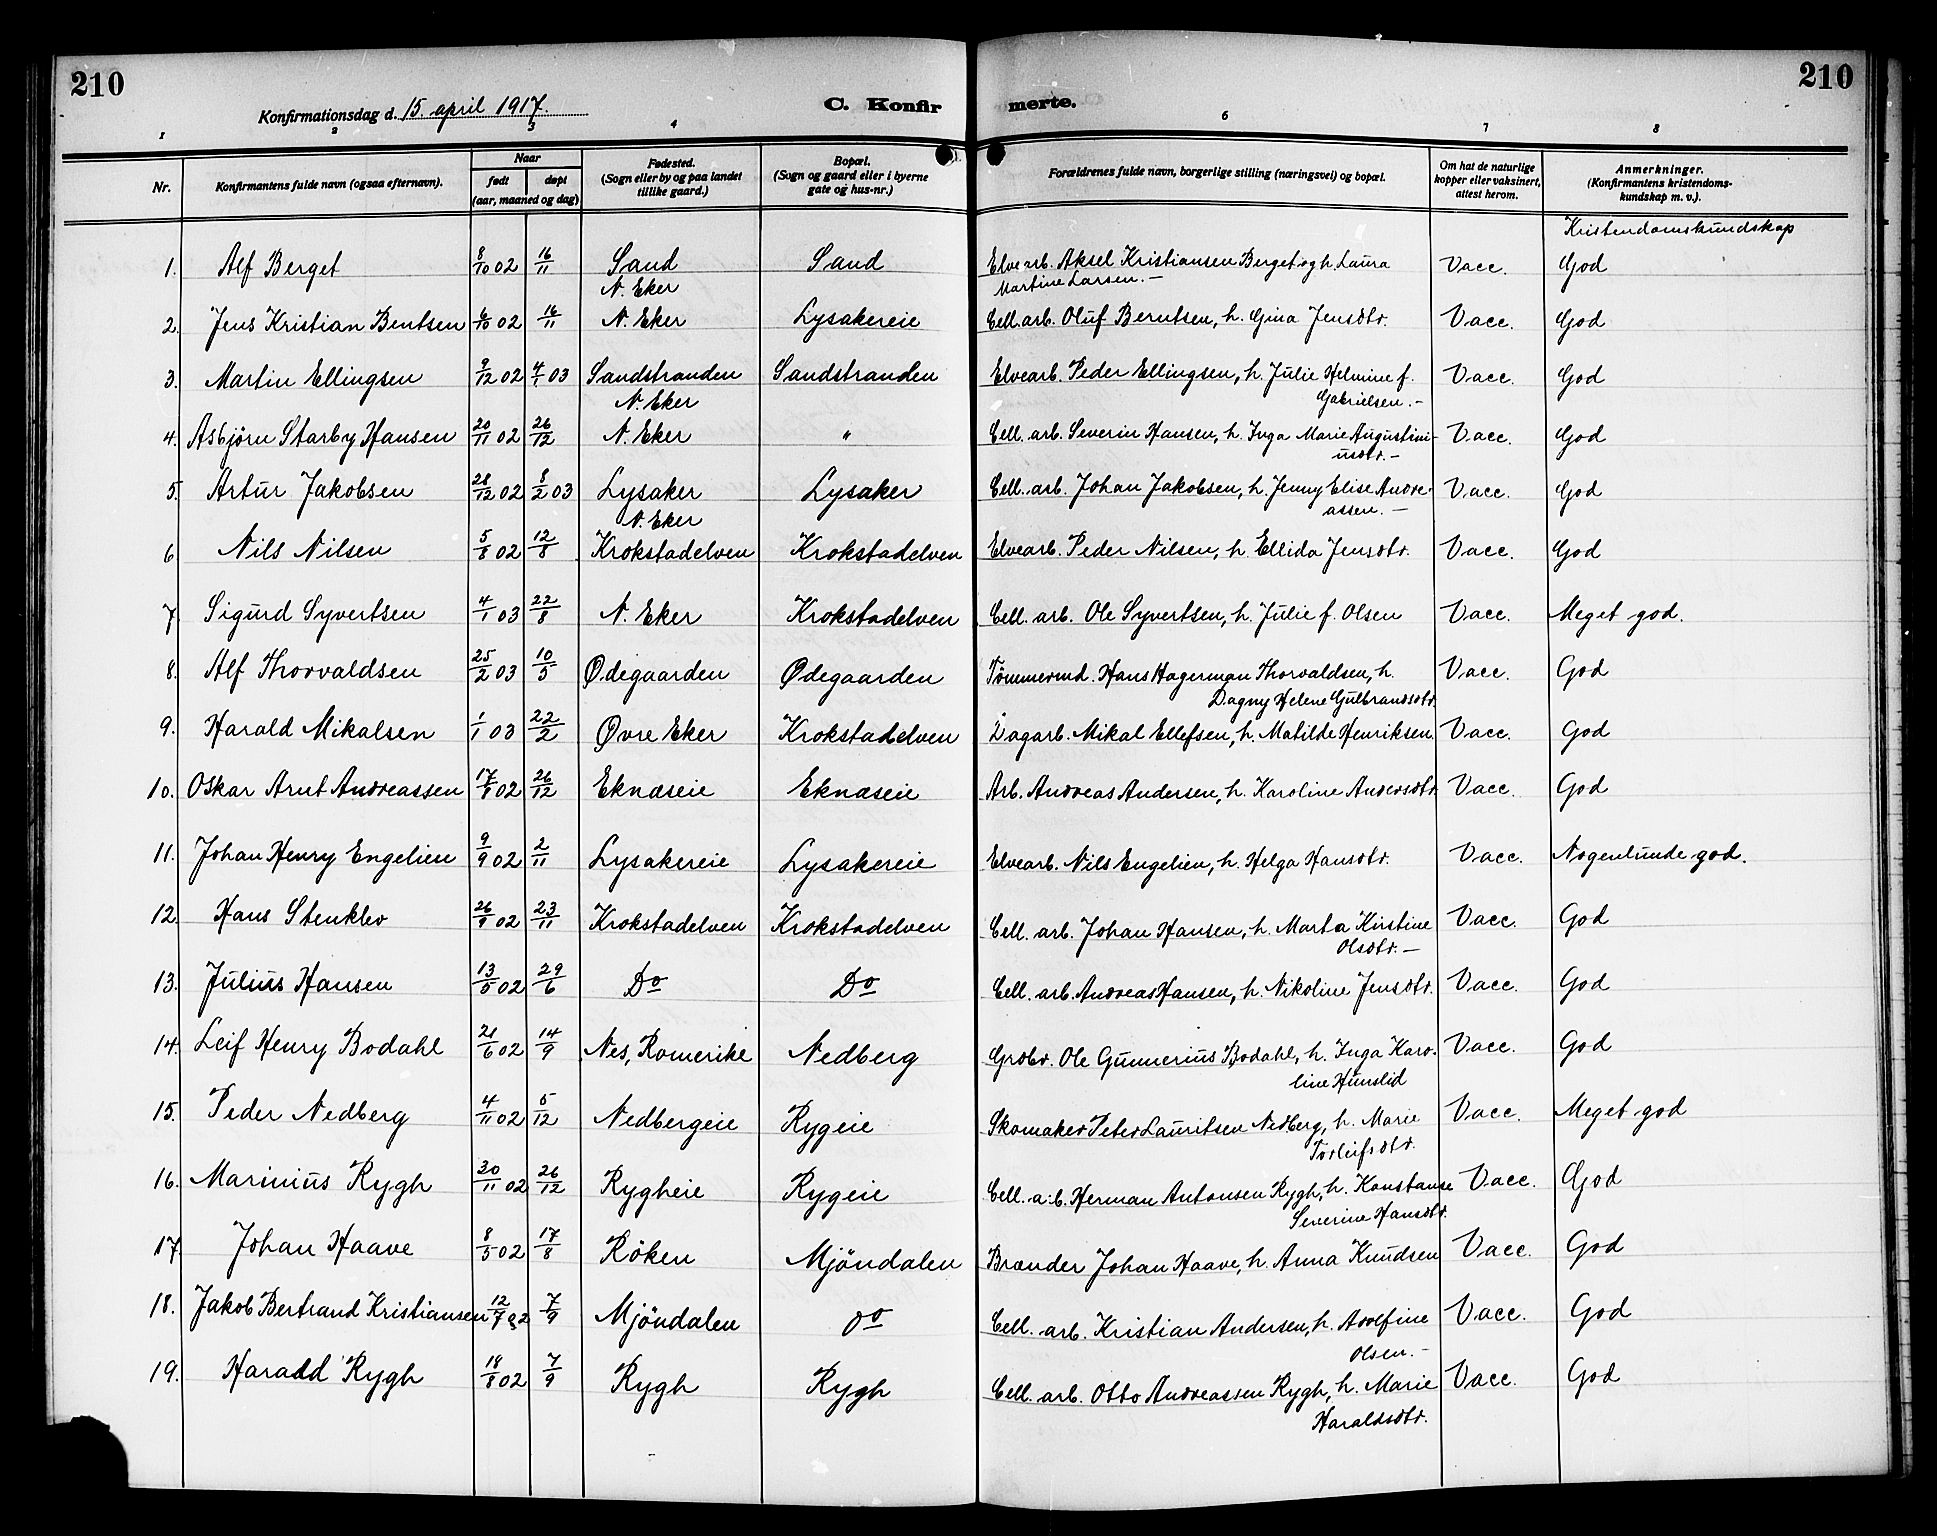 210
210
Konfirmationsdag d. 15. april 1917.
C. Konfirmerte.
1 2 3 4 6 7 8
Nr.
Konfirmantens fulde navn (ogsaa efternavn).
Naar
født
døpt
(aar, maaned og dag)
Fødested.
(Sogn eller by og paa landet
tillike gaard.)
Bopæl.
(Sogn og gaard eller i byerne
gate og hus-nr.)
Forældrenes fulde navn, borgerlige stilling (næringsvei) og bopæl.
Om hat de naturlige
kopper eller vaksinert,
attest herom.
Anmerkninger.
(Konfirmantens kristendoms-
kundskap m. v.).
Kristendomskundskap
1. Alf Berget 8/10 02 16/11 Sand Sand Elvearb. Aksel Kristiansen Berget og h. Laura Vacc. God
N. Eker Martine Larsen. —
2. Jens Kristian Bentsen 6/10 02 16/11 N. Eker Lysakereie Cell. arb. Oluf Berntsen, h. Gina Jensdtr. Vacc. God
3. Martin Ellingsen 9/12 02 4/1 03 Sandstranden Sandstranden Elvearb. Peder Ellingsen, h. Julie Helmine f. Vacc. God
N. Eker Gabrielsen. —
4. Asbjörn Starby Hansen 20/11 02 26/12 N. Eker " Cell. arb. Severin Hansen, h. Inga Marie Augustini- Vacc. God
usdtr. —
5. Artur Jakobsen 28/12 02 8/2 03 Lysaker Lysaker Cell. arb. Johan Jakobsen, h. Jenny Elise Andre- Vacc. God
N. Eker assen. —
6 Nils Nilsen 5/8 02 12/8 Krokstadelven Krokstadelven Elvearb. Peder Nilsen, h. Ellida Jensdtr. Vacc. God
7 Sigurd Syvertsen 4/1 03 22/8 N. Eker Krokstadelven Cell. arb. Ole Syvertsen, h. Julie f. Olsen Vacc. Meget god.
8. Alf Thorvaldsen 25/2 03 10/5 Ødegaarden Ødegaarden Tömmermd. Hans Hagerman Thorvaldsen, h. Vacc. God
Dagny Helene Gulbrandsdtr.
9. Harald Mikalsen 1/1 03 22/2 Øvre Eker Krokstadelven Dagarb. Mikal Ellefsen, h. Matilde Henriksen. Vacc. God
10. Oskar Arnt Andreassen 17/9 02 26/12 Eknæseie Eknæseie Arb. Andreas Andersen, h. Karoline Andersdtr. Vacc. God
11. Johan Henry Engelien 9/9 02 2/11 Lysakereie Lysakereie Elvearb. Nils Engelien, h. Helga Hansdtr. Vacc. Nogenlunde god.
12. Hans Stenklev 26/9 02 23/11 Krokstadelven Krokstadelven Cell. arb. Johan Hansen, h. Marta Kirstine Vacc. God
Olsdtr. —
13. Julius Hansen 13/5 02 29/6 Do Do Cell. arb. Andreas Hansen, h. Nikoline Jensdtr. Vacc. God
14. Leif Henry Bodahl 21/6 02 14/9 Nes, Romerike Nedberg Grdbr. Ole Gunnerius Bodahl, h. Inga Karo- Vacc. God
line Hunslid
15. Peder Nedberg 4/11 02 5/12 Nedbergeie Rygeie Skomaker Peter Lauritsen Nedberg, h. Marie Vacc. Meget god
Torleifsdtr.
16. Marinius Rygh 30/11 02 26/12 Rygheie Rygeie Cell. arb. Herman Antonsen Rygh, h. Konstanse Vacc. God
Severine Hansdtr.
17. Johan Haave 8/5 02 17/8 Röken Mjöndalen Brænder Johan Haave, h. Anna Knudsen Vacc. God
18. Jakob Bertrand Kristiansen 12/7 02 7/9 Mjöndalen do Cell. arb. Kristian Andersen, h. Adolfine Vacc. God
Olsen. —
19. Harald Rygh 18/8 02 7/9 Rygh Rygh Cell. arb. Otto Andreassen Rygh, h. Marie Vacc. God
Haraldsdtr.